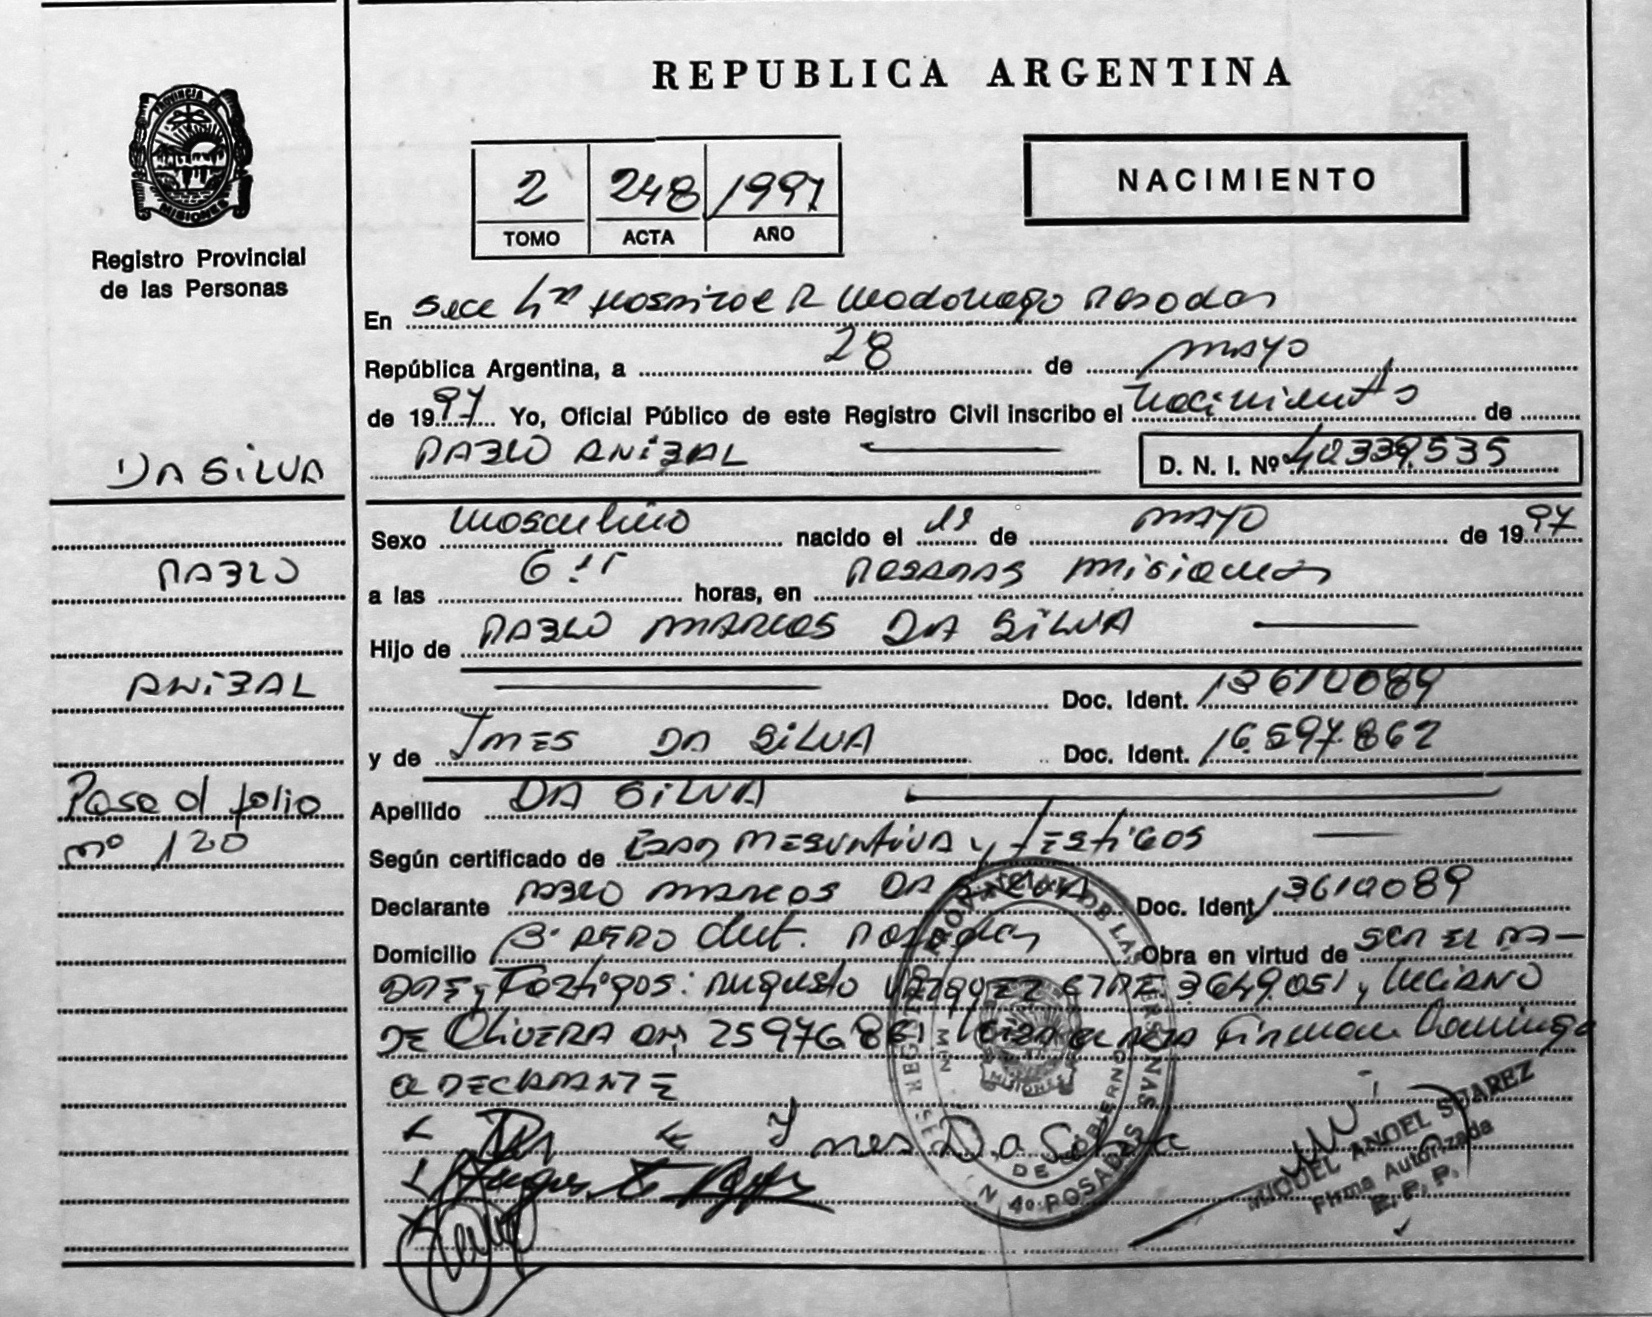 REPUBLICA ARGENTINA
PROVINCIA D
MISIONES
Registro Provincial
de las Personas
NACIMIENTO
2 248 1997
TOMO ACTA AÑO
En Secc 4ta Hospital R Madariaga Posadas
República Argentina, a 28 de mayo
de 1997 Yo, Oficial Público de este Registro Civil inscribo el nacimiento de
PABLO ANIBAL D. N. I. Nº 40339.535
DA SILVA
PABLO
ANIBAL
Pasa al folio
nº 120
Sexo masculino nacido el de mayo de 1997
a las horas, en POSADAS misiones
Hijo de PABLO MARCOS DA SILVA
Doc. Ident. 13610089
y de INES DA SILVA Doc. Ident. 16.597.862
Apellido DA SILVA
Según certificado de y TESTIGOS
Declarante PABLO MARCOS DA SILVA Doc. Ident. 13610089
Domicilio Posadas Obra en virtud de SER EL PA-
DRE y Testigos: Augusto 3649.051, LUCIANO
DE OLIVERA DNI 25976861 Firman
EL DECLARANTE
Ines Da Silva
REGISTRO PROVINCIAL DE LAS PERSONAS
MIN DE GOBIERNO
MISIONES
SECCION 4º POSADAS
MIGUEL ANGEL SUAREZ
Firma Autorizada
R. P. P.